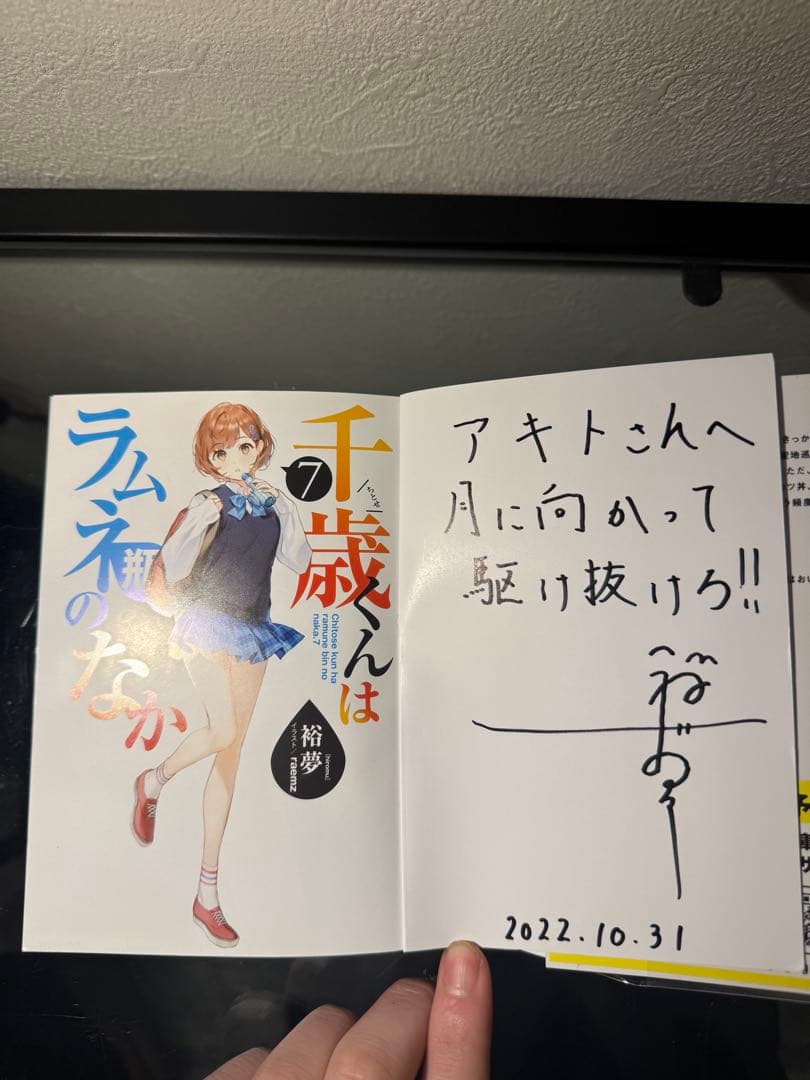 千歳くんは
ちとせ
ラムネ瓶のなか
7
Chitose kun ha
ramune bin no
naka.7
裕夢
[hiromu]
イラスト/raemz
アキトさんへ
月に向かって
駆け抜けろ!!
裕夢
2022.10.31